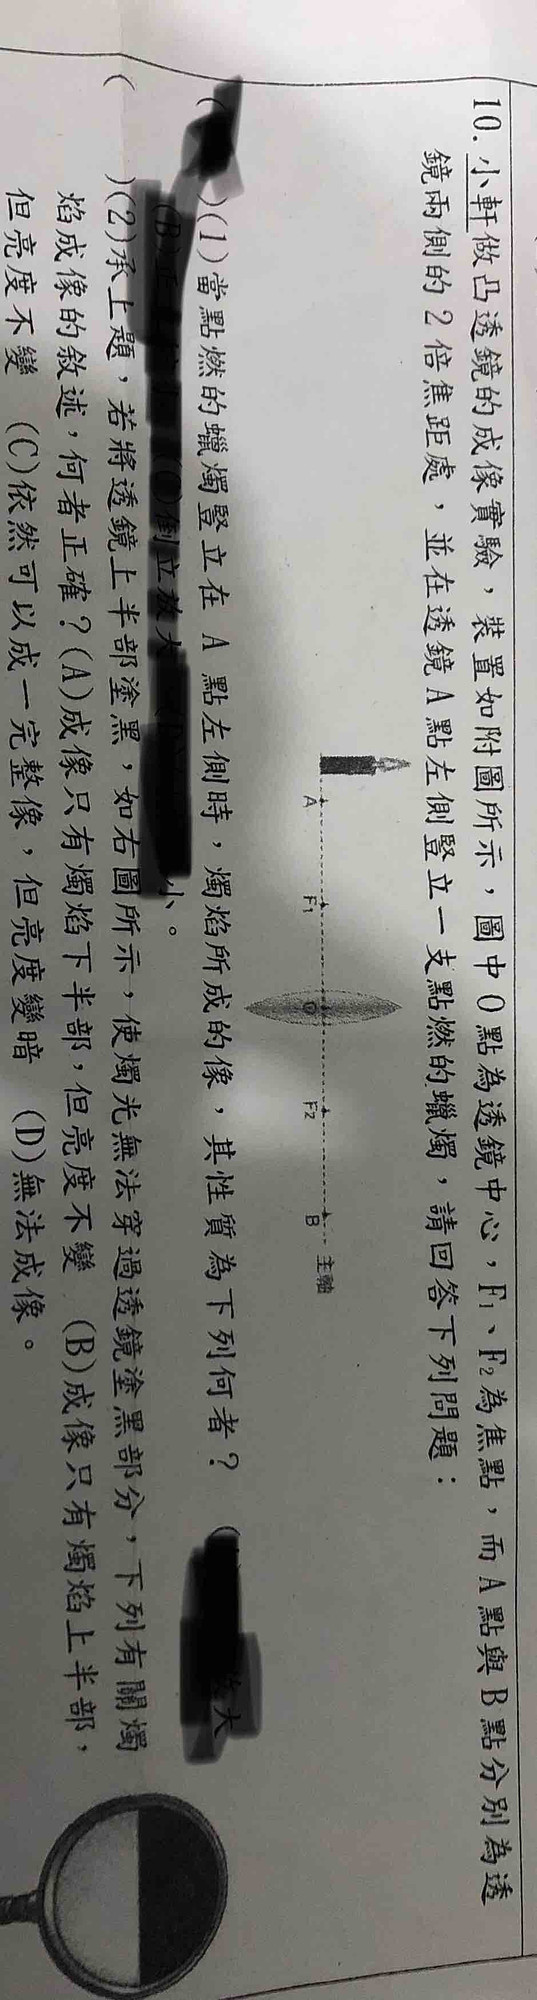 10. 小軒做凸透鏡的成像實驗，裝置如附圖所示，圖中O點為透鏡中心，F₁、F₂為焦點，而A點與B點分別為透
鏡兩側的2倍焦距處，並在透鏡A點左側豎立一支點燃的蠟燭，請回答下列問題：
A F₁ O F₂ B 主軸
( )(1)當點燃的蠟燭豎立在A點左側時，燭焰所成的像，其性質為下列何者？ 大
倒立放大 小。
( )(2)承上題，若將透鏡上半部塗黑，如右圖所示，使燭光無法穿過透鏡塗黑部分，下列有關燭
焰成像的敘述，何者正確？(A)成像只有燭焰下半部，但亮度不變 (B)成像只有燭焰上半部，
但亮度不變 (C)依然可以成一完整像，但亮度變暗 (D)無法成像。